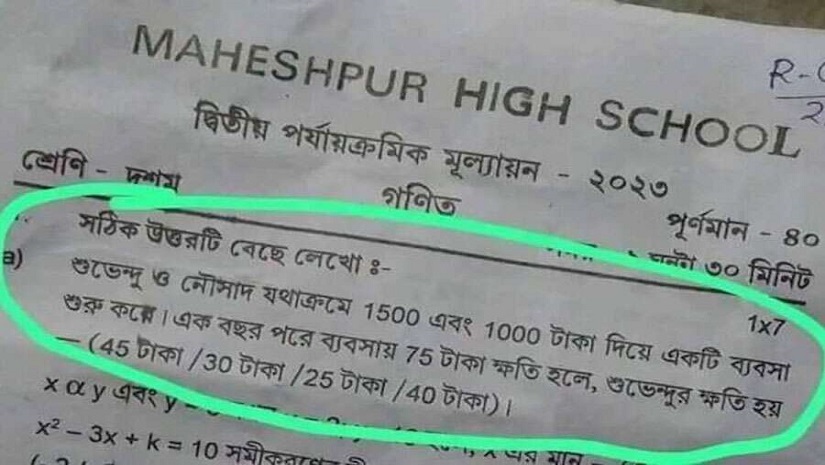 MAHESHPUR HIGH SCHOOL
R-
2
দ্বিতীয় পর্যায়ক্রমিক মূল্যায়ন - ২০২৩
শ্রেণি - দশম
গণিত
পূর্ণমান - 80
৩০ মিনিট
সঠিক উত্তরটি বেছে লেখো ঃ-
1x7
a) শুভেন্দু ও নৌসাদ যথাক্রমে 1500 এবং 1000 টাকা দিয়ে একটি ব্যবসা
শুরু করে। এক বছর পরে ব্যবসায় 75 টাকা ক্ষতি হলে, শুভেন্দুর ক্ষতি হয়
— (45 টাকা /30 টাকা /25 টাকা /40 টাকা)।
x α y এবং y
x² – 3x + k = 10